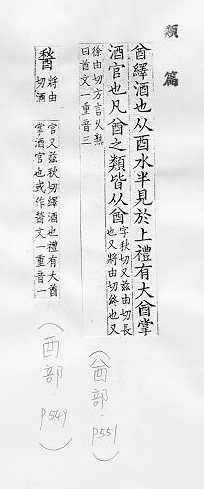 類篇
酋繹酒也从酉水半見於上禮有大酋掌
酒官也凡酋之類皆从酋字秋切又茲由切長
也又將由切終也又
徐由切方言久熟
曰酋文一重音三
(酋部.p551)
將由
切酒
官又茲秋切繹酒也禮有大酋
掌酒官也或作 文一重音一
(酉部.p549)